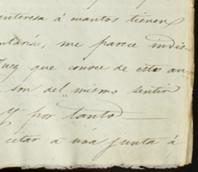 interesa á cuantos tienen
ntarás, me parece indis
Juez que conoce de estos au
son del mismo sentir
y por tanto
citar a una junta á